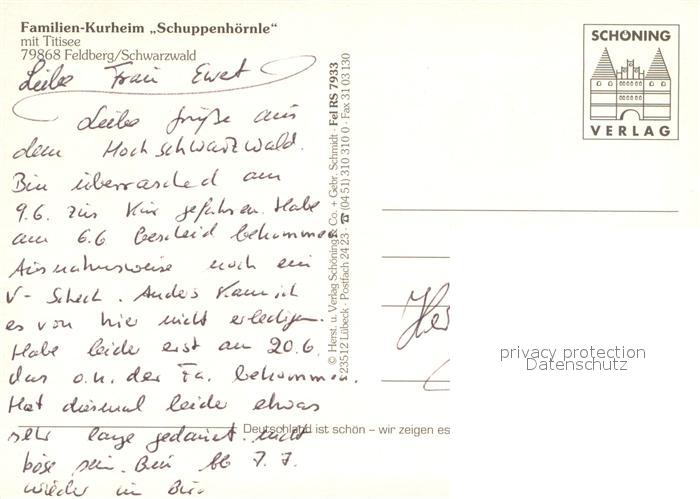 Familien-Kurheim „Schuppenhörnle“
mit Titisee
79868 Feldberg/Schwarzwald
Liebe Frau Ewet
Liebe Grüße aus
dem Hochschwarzwald.
Bin überrasched am
9.6. zur Kur gefahren. Habe
am 6.6 bescheid bekommen
Ausnahmsweise noch ein
V-Scheck. Anders kann ich
es von hier nicht erledigen.
Habe leider erst am 20.6.
das o.k. der Fa. bekommen.
Hat diesmal leider etwas
sehr lange gedauert. nicht
böse sein. Bin ab 7.7.
wieder im
© Herst. u. Verlag Schöning & Co. + Gebr. Schmidt · Fel RS 7933
23512 Lübeck · Postfach 24 23 · ☎ (04 51) 310 310 0 · Fax 31 03 130
SCHÖNING
VERLAG
privacy protection
Datenschutz
Deutschland ist schön – wir zeigen es